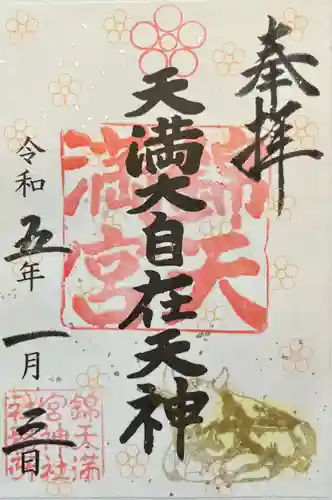 奉拝
天満大自在天神
令和五年一月三日
錦天満宮
錦天満
宮神社